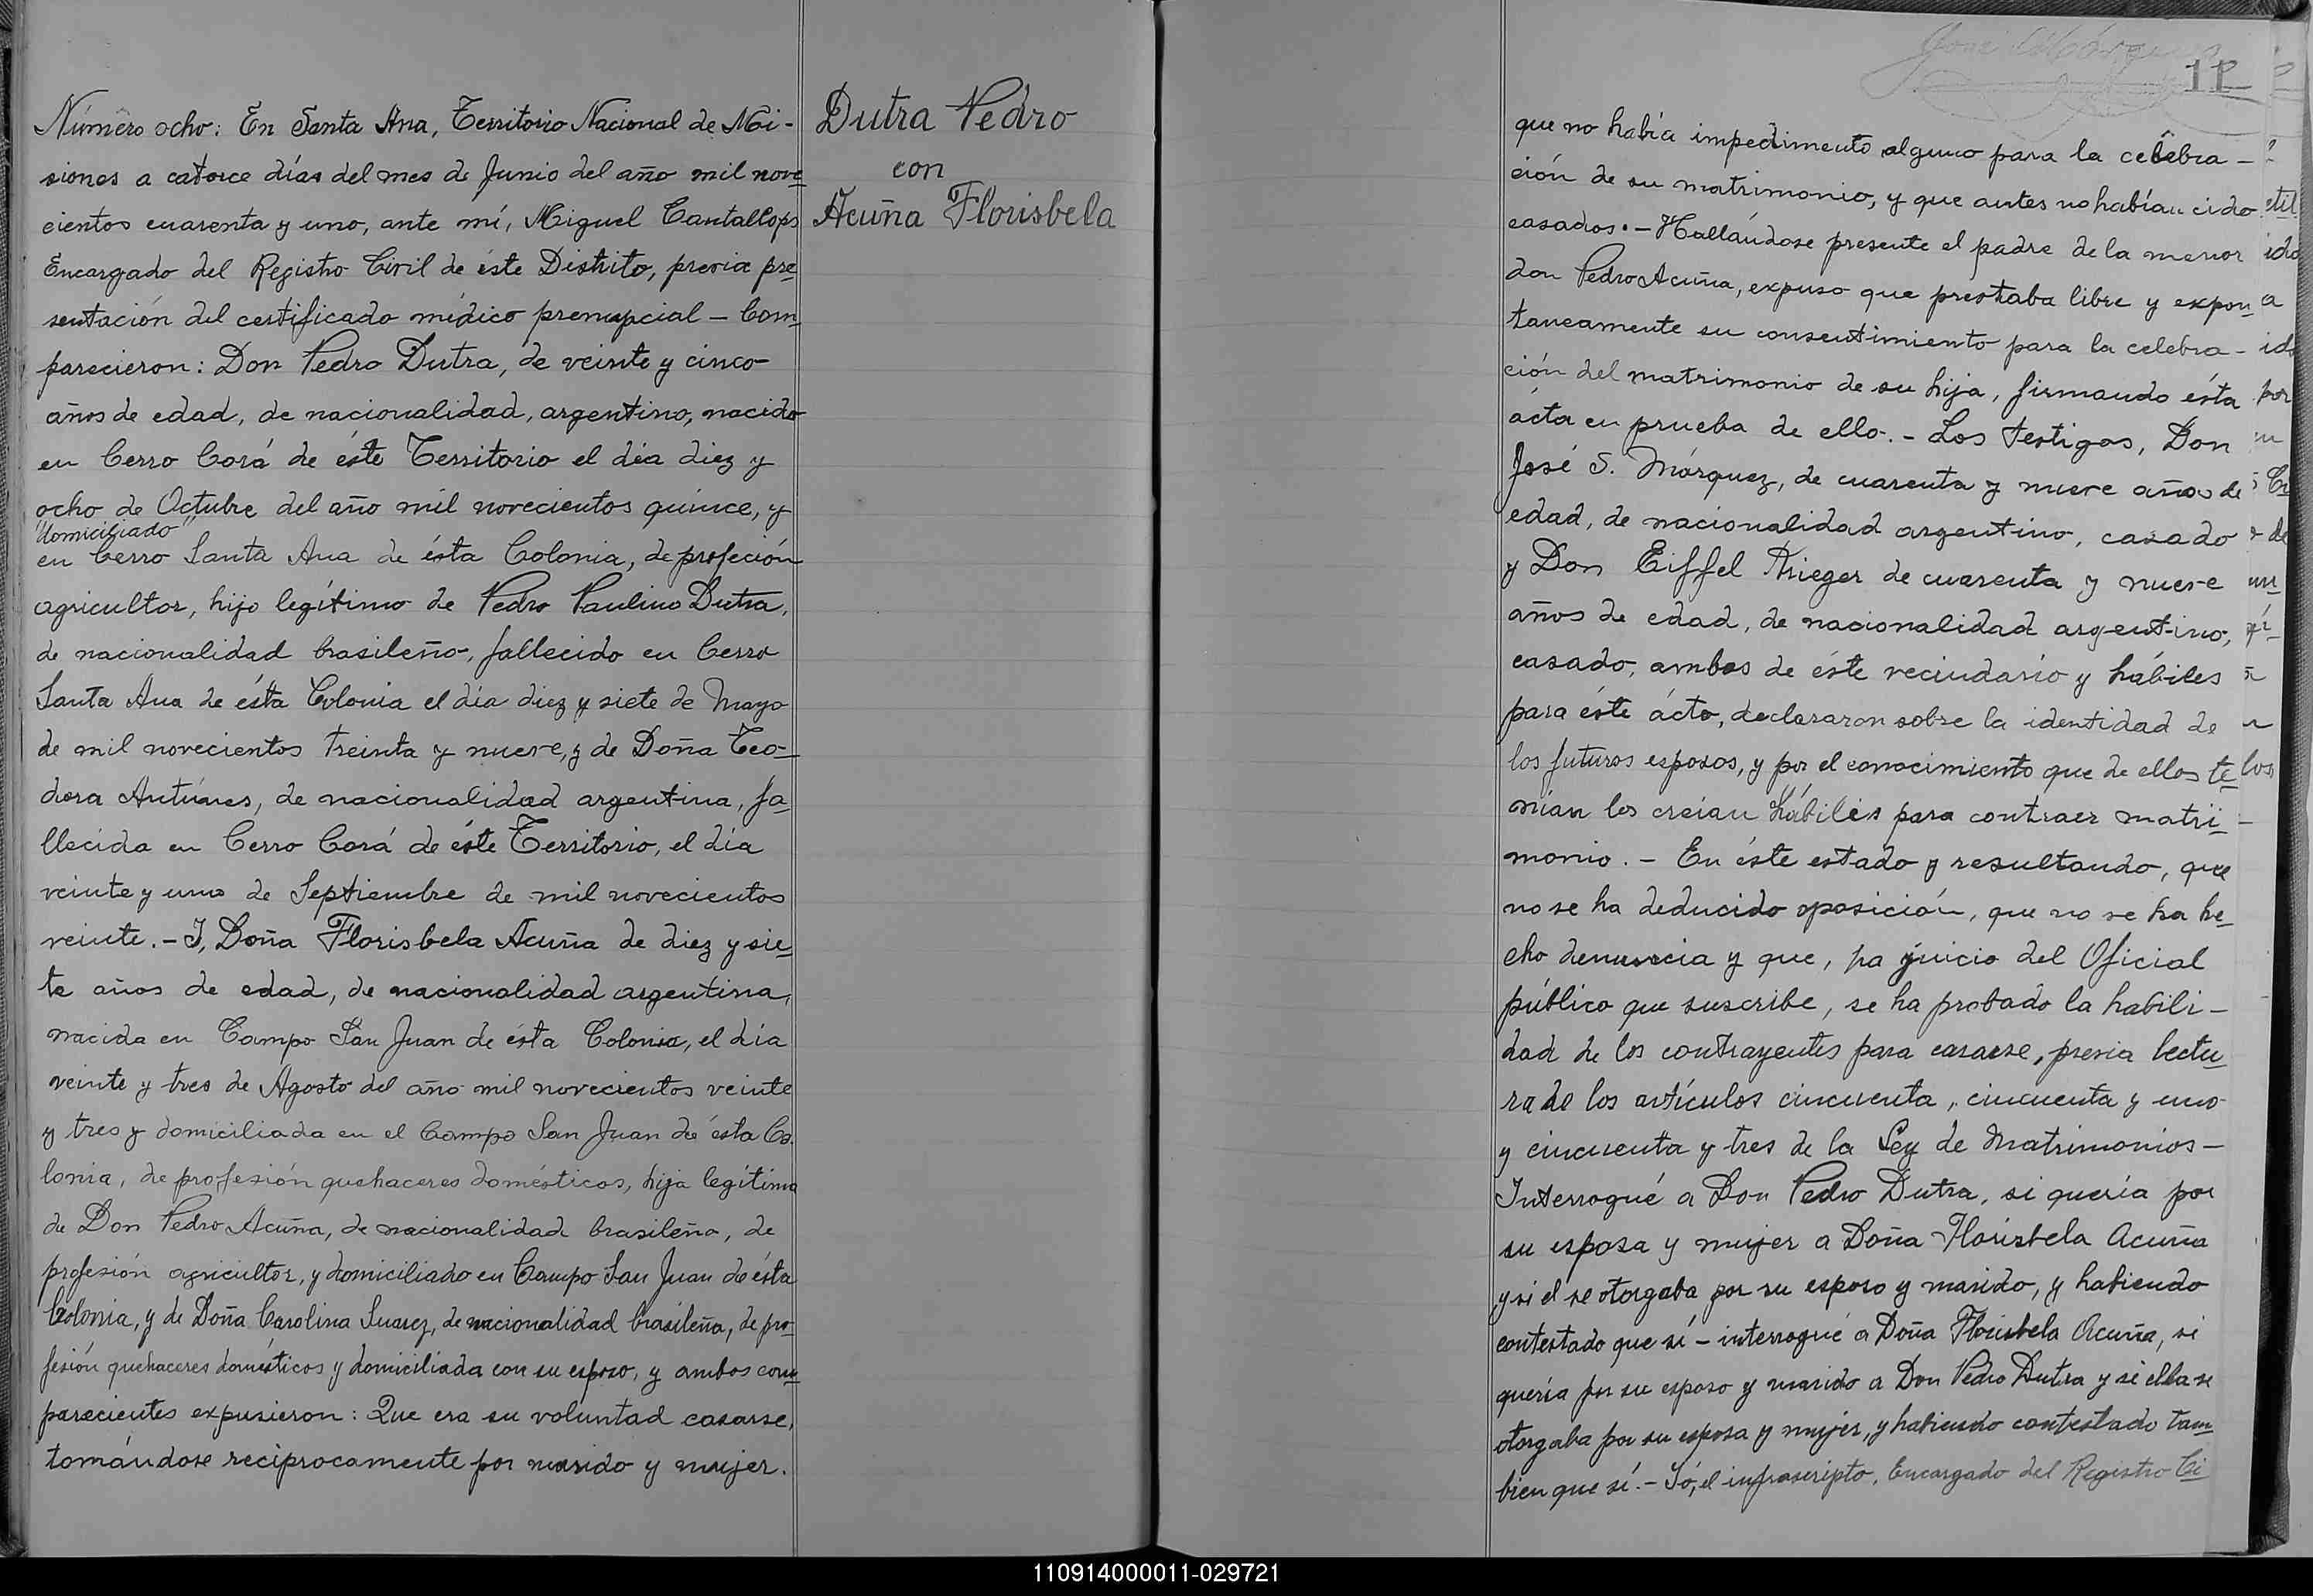 Número ocho: En Santa Ana, Territorio Nacional de Mi-
siones a catorce días del mes de Junio del año mil nove
cientos cuarenta y uno, ante mí, Miguel Cantallops
Encargado del Registro Civil de éste Distrito, previa pre
sentación del certificado médico prenupcial – Com
parecieron: Don Pedro Dutra, de veinte y cinco
años de edad, de nacionalidad, argentino, nacido
en Cerro Corá de éste Territorio el día diez y
ocho de Octubre del año mil novecientos quince, y
"domiciliado"
en Cerro Santa Ana de ésta Colonia, de profeción
agricultor, hijo legítimo de Pedro Paulino Dutra,
de nacionalidad brasileño, fallecido en Cerro
Santa Ana de ésta Colonia el día diez y siete de Mayo
de mil novecientos treinta y nueve, y de Doña Teo-
dora Antúnes, de nacionalidad argentina, fa
llecida en Cerro Corá de éste Territorio, el día
veinte y uno de Septiembre de mil novecientos
veinte.- I, Doña Florisbela Acuña de diez y sie
te años de edad, de nacionalidad argentina,
nacida en Campo San Juan de ésta Colonia, el día
veinte y tres de Agosto del año mil novecientos veinte
y tres y domiciliada en el Campo San Juan de ésta Co.
lonia, de profesión quehaceres domésticos, hija legítima
de Don Pedro Acuña, de nacionalidad brasileño, de
profesión agricultor, y domiciliado en Campo San Juan de ésta
Colonia, y de Doña Carolina Suarez, de nacionalidad brasileña, de pro-
fesión quehaceres domésticos y domiciliada con su esposo, y ambos com
parecientes expusieron: Que era su voluntad casarse,
tomándose recíprocamente por marido y mujer.
Dutra Pedro
con
Acuña Florisbela
José Márquez
11
que no había impedimento alguno para la celebra-
ción de su matrimonio, y que antes no habían cido
casados.- Hallándose presente el padre de la menor
don Pedro Acuña, expuso que prestaba libre y expon
taneamente su consentimiento para la celebra-
ción del matrimonio de su hija, firmando ésta
ácta en prueba de ello.- Los testigos, Don
José S. Márquez, de cuarenta y nueve años de
edad, de nacionalidad argentino, casado
y Don Eiffel Krieger de cuarenta y nueve
años de edad, de nacionalidad argentino,
casado, ambos de éste vecindario y hábiles
para éste ácto, declararon sobre la identidad de
los futuros esposos, y por el conocimiento que de ellos te
nían los creían hábiles para contraer matri
monio.- En éste estado y resultando, que
no se ha deducido oposición, que no se ha he
cho denuncia y que, ha juicio del Oficial
público que suscribe, se ha probado la habili-
dad de los contrayentes para casarse, previa lectu
ra de los artículos cincuenta, cincuenta y uno
y cincuenta y tres de la Ley de Matrimonios-
Interrogué a Don Pedro Dutra, si quería por
su esposa y mujer a Doña Florisbela Acuña
y si el se otorgaba por su esposo y marido, y habiendo
contestado que sí – interrogué a Doña Florisbela Acuña, si
quería por su esposo y marido a Don Pedro Dutra y si ella se
otorgaba por su esposa y mujer, y habiendo contestado tam
bien que sí.- Yó, el infrascripto, Encargado del Registro Ci
110914000011-029721